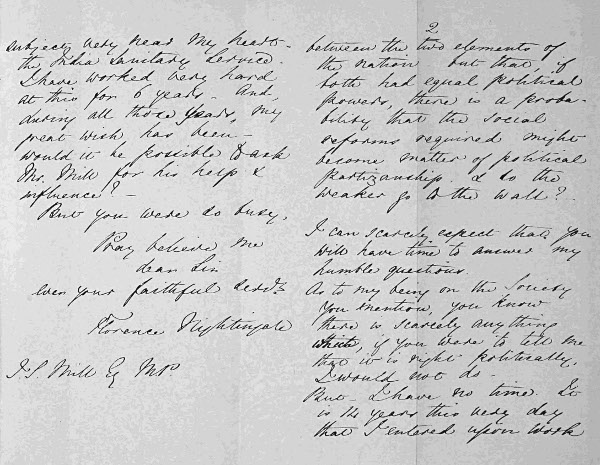 subject very near my heart -
the India Sanitary Service.
I have worked very hard
at this for 6 years. And,
during all those years, my
great wish has been -
would it be possible to ask
Mr. Mill for his help &
influence? -
But you were so busy.
Pray believe me
dear Sir
ever your faithful servt.
Florence Nightingale
J.S. Mill Esq MP.
2
between the two elements of
the nation but that if
both had equal political
powers, there is a proba-
bility that the social
reforms required might
become matter of political
partizanship. & so the
weaker go to the wall?
I can scarcely expect that you
will have time to answer my
humble questions.
As to my being on the Society
you mention, you know
there is scarcely anything
which, if you were to tell me
that it is right politically,
I would not do -
But - I have no time. It
is 14 years this very day
that I entered upon work